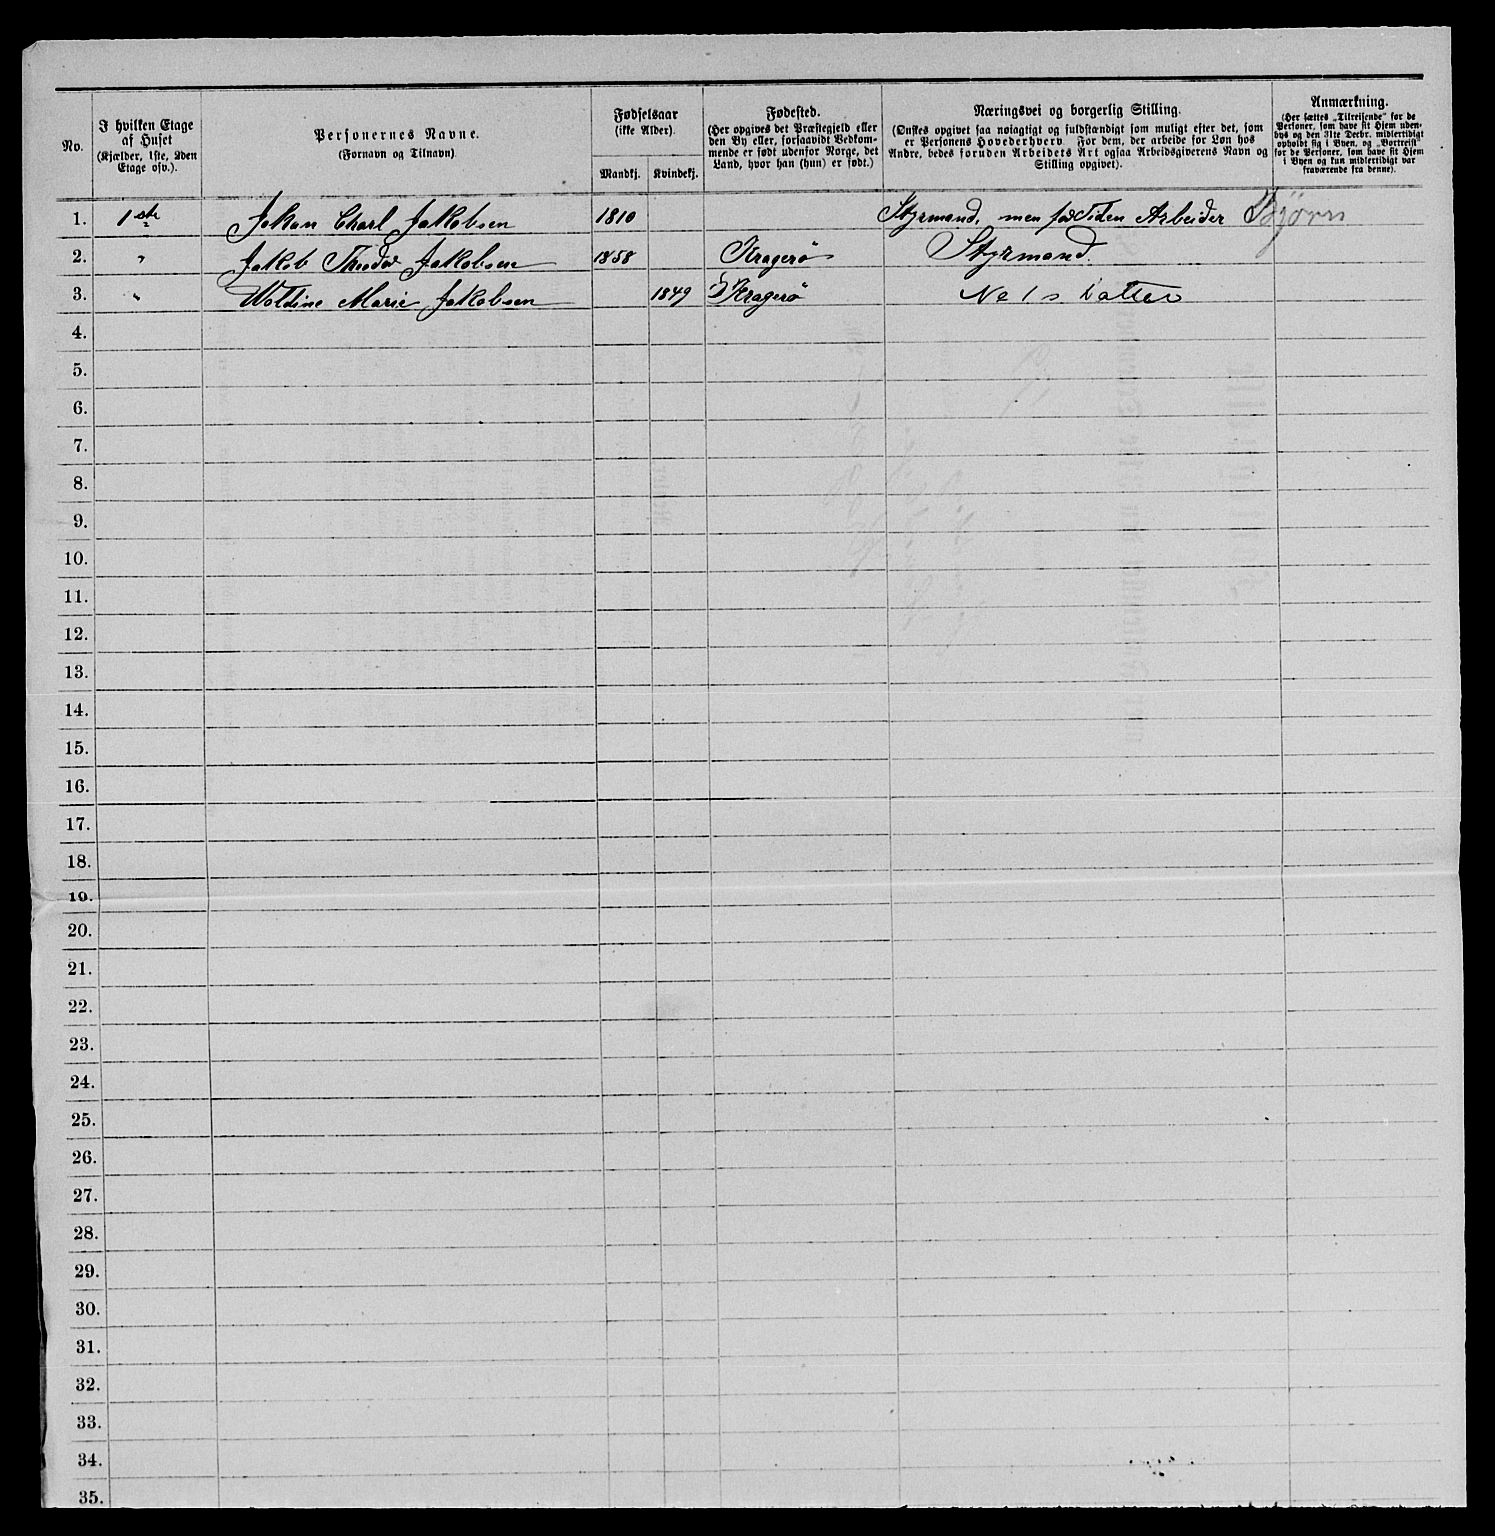 No.
I hvilken Etage af Huset (Kjælder, 1ste, 2den Etage osv.).
Personernes Navne. (Fornavn og Tilnavn)
Fødselsaar (ikke Alder).
Mandkj. Kvindekj.
Fødested. (Her opgives det Præstegjeld eller den By eller, forsaavidt Vedkommende er født udenfor Norge, det Land, hvor han (hun) er født.)
Næringsvei og borgerlig Stilling. (Ønskes opgivet saa nøiagtigt og fuldstændigt som muligt efter det, som er Personens Hovederhverv. For dem, der arbeide for Løn hos Andre, bedes foruden Arbeidets Art ogsaa Arbeidsgiverens Navn og Stilling opgivet).
Anmærkning. (Her sættes „Tilreisende“ for de Personer, som have sit Hjem udenbys og den 31te Decbr. midlertidigt opholdt sig i Byen, og „Bortreist“ for de Personer, som have sit Hjem i Byen og kun midlertidigt var fraværende fra denne).
1. 1ste Johan Charl Jakobsen 1810 Styrmand, men for Tiden Arbeider Bjørn
2. " Jakob Theodor Jakobsen 1858 Kragerø Styrmand.
3. " Woldine Marie Jakobsen 1849 Kragerø No 1 s Datter
4.
5.
6.
7.
8.
9.
10.
11.
12.
13.
14.
15.
16.
17.
18.
19.
20.
21.
22.
23.
24.
25.
26.
27.
28.
29.
30.
31.
32.
33.
34.
35.